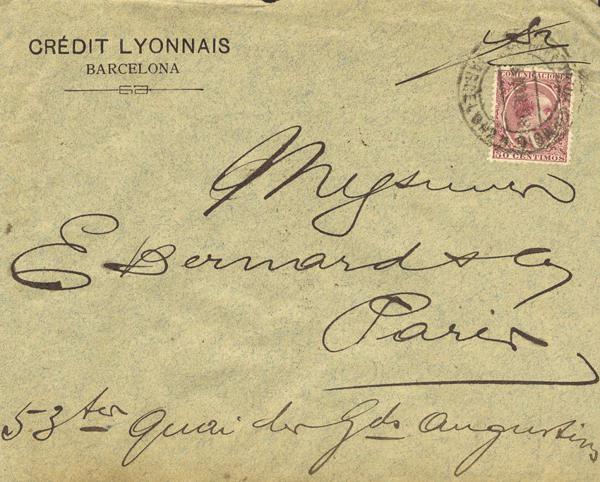 CRÉDIT LYONNAIS
BARCELONA
COMUNICACIONES
50 CENTIMOS
Messieurs
E Bernard & Cy
Paris
53ter Quai des Gds Augustins